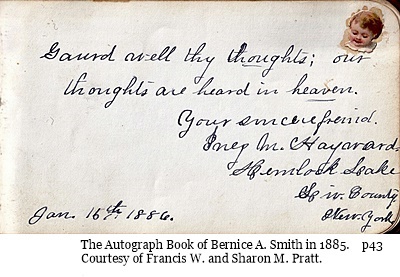 Gaurd well thy thoughts; our
thoughts are heard in heaven.
Your sincere freind.
Inez M. Hayward.
Hemlock Lake
Liv. County
New. York
Jan. 16th 1886.
The Autograph Book of Bernice A. Smith in 1885. p43
Courtesy of Francis W. and Sharon M. Pratt.